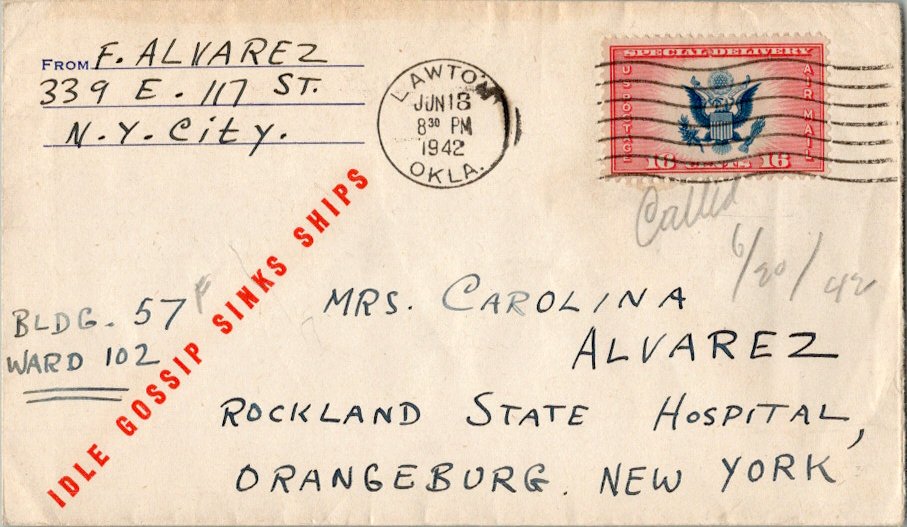 FROM F. ALVAREZ
339 E. 117 ST.
N.Y. CitY.
LAWTON
JUN 18
8 30 PM
1942
OKLA.
SPECIAL DELIVERY
US POSTAGE
AIR MAIL
16 CENTS 16
Called
6/20/42
IDLE GOSSIP SINKS SHIPS
BLDG. 57
WARD 102
MRS. CAROLINA
ALVAREZ
ROCKLAND STATE HOSPITAL,
ORANGEBURG. NEW YORK